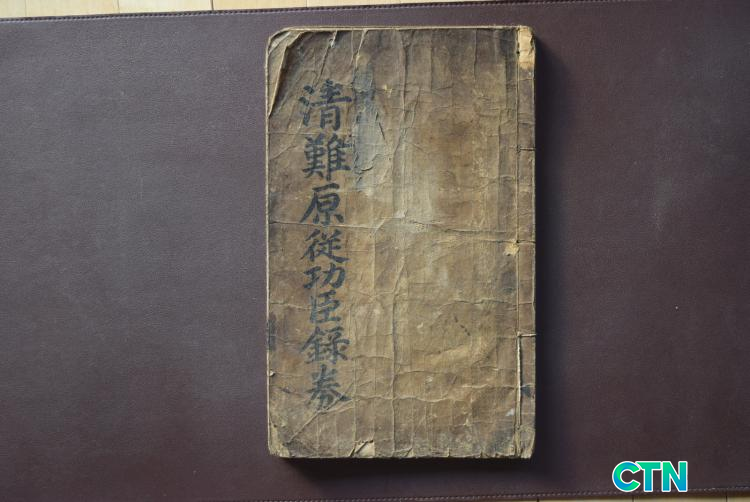 清難原從功臣錄券
CTN